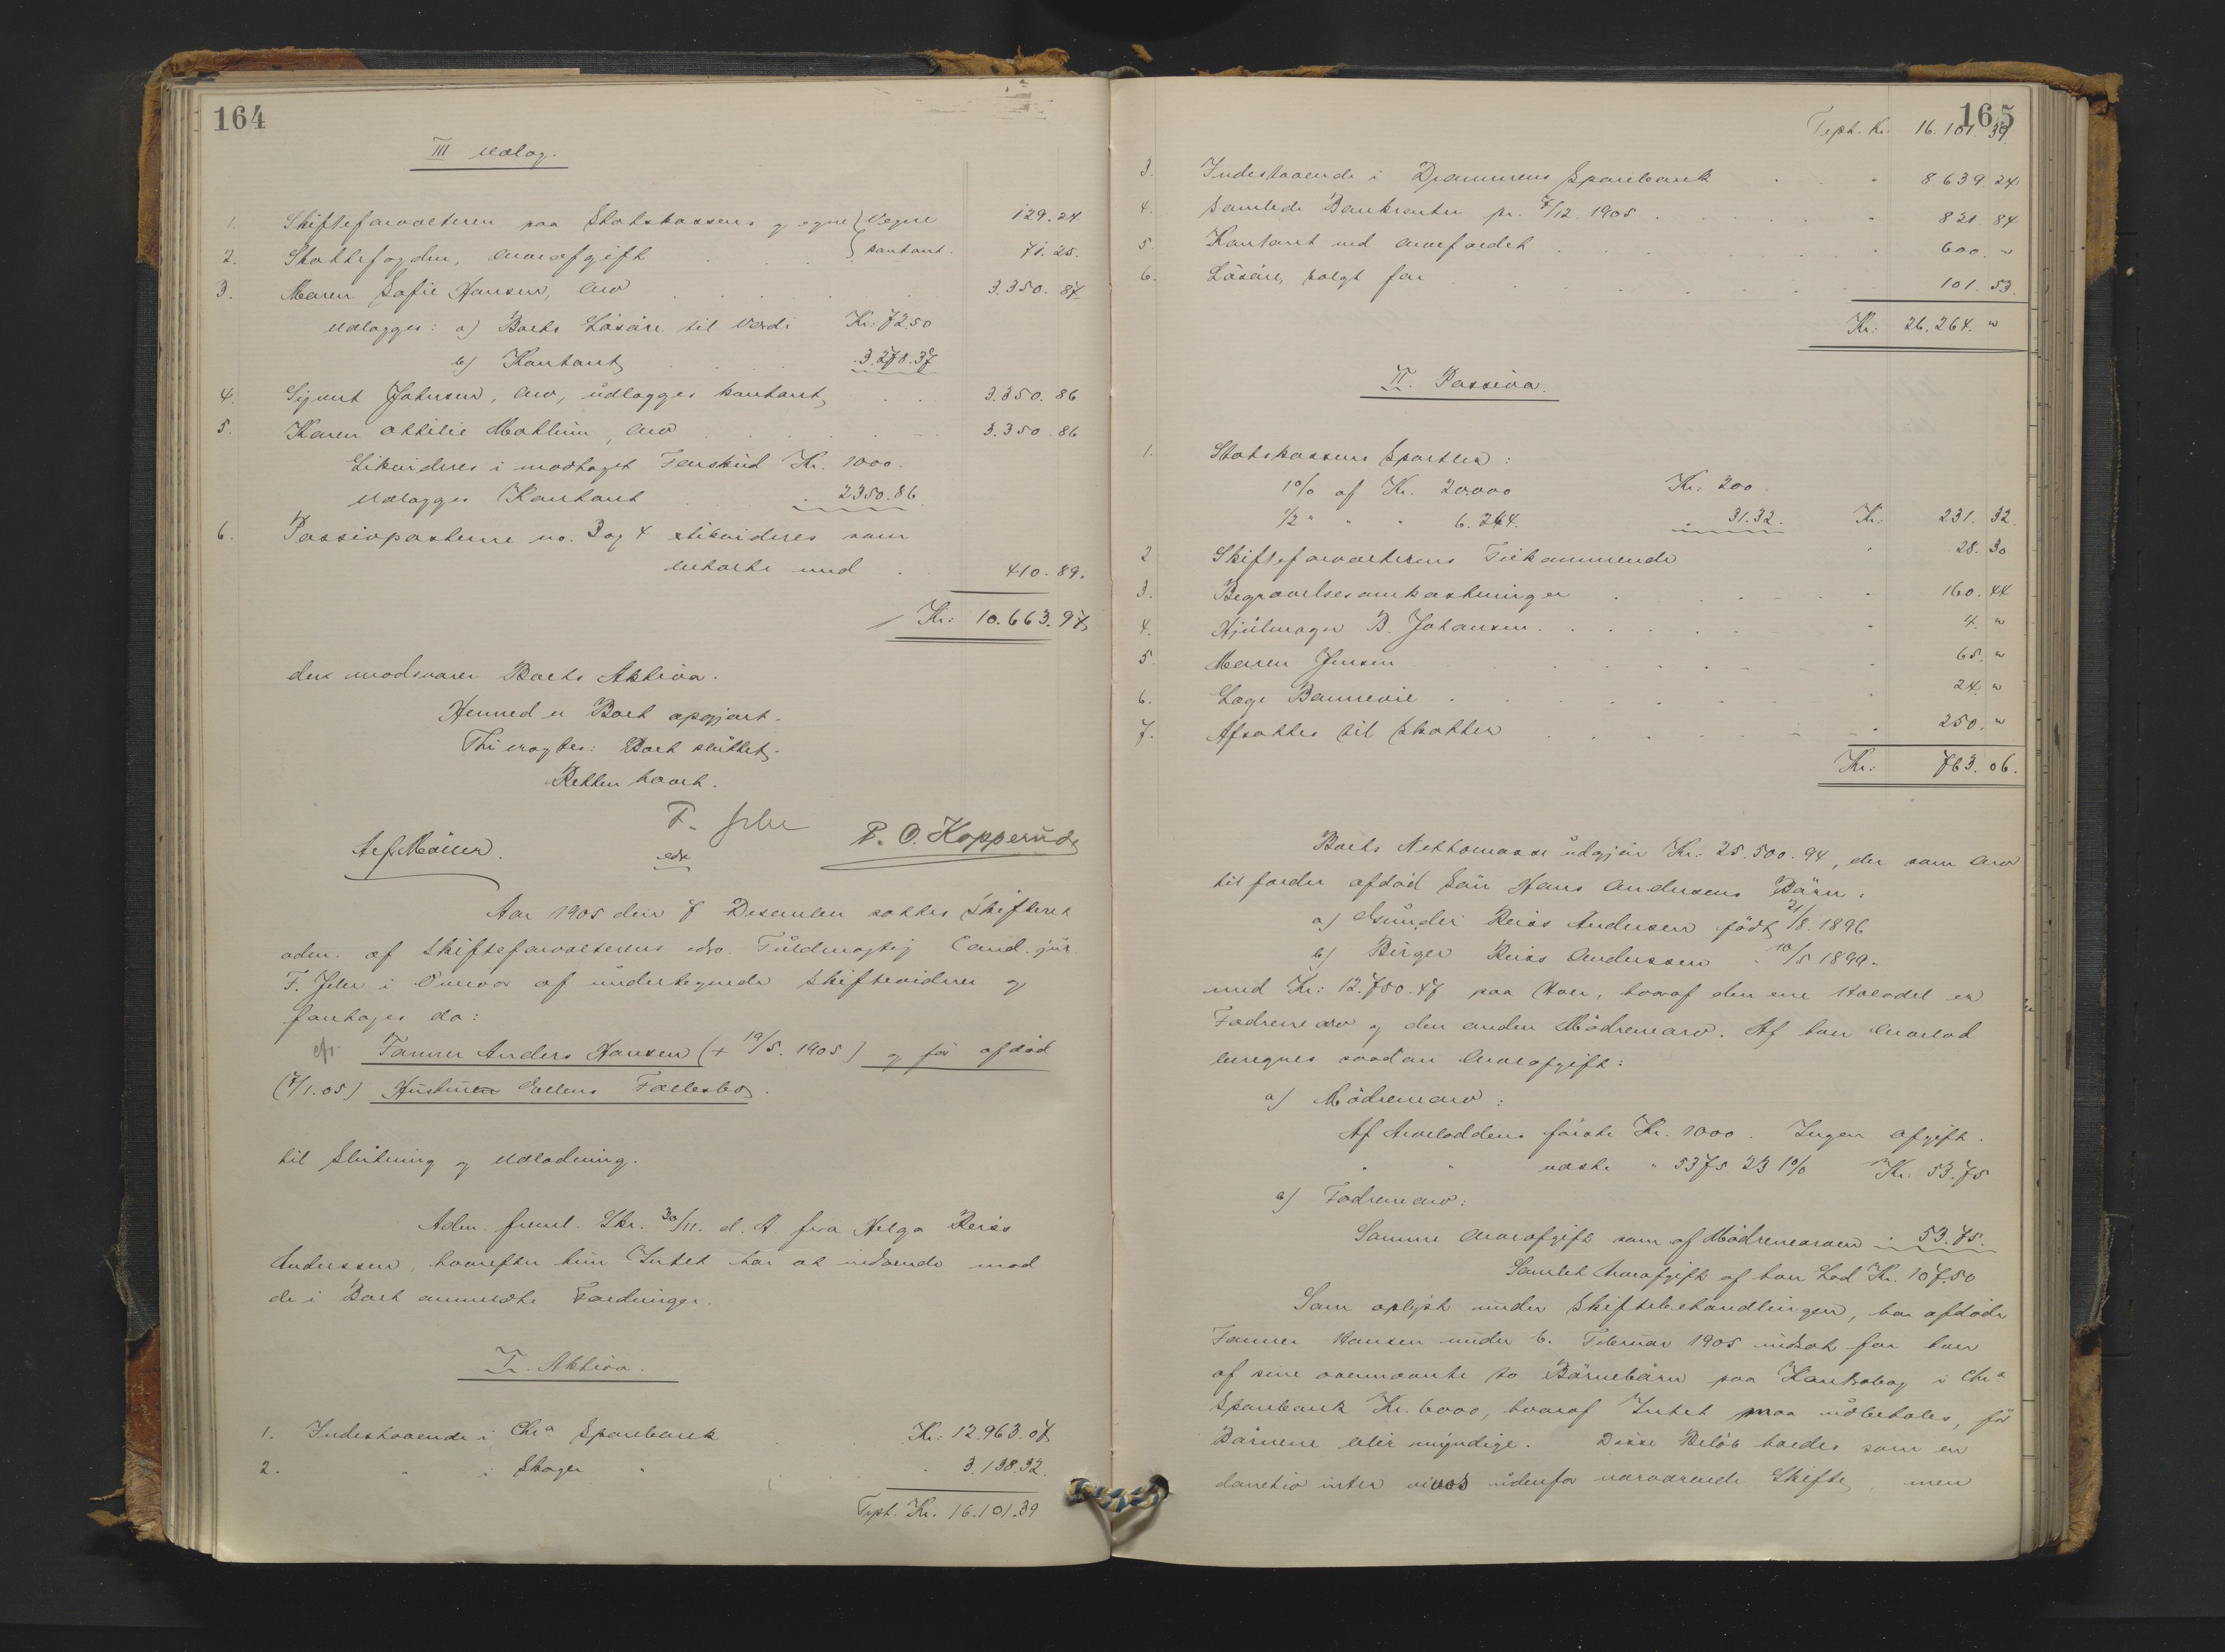 164
III Udlæg.
1. Skifteforvalteren paa Statskassens og egne Vegne 129.24
2. Skattefogden, Arveafgift kontant. 71.25.
3. Maren Sofie Hansen, Arv 3.350.87
Udlægges: a) Boets Løsøre til Værdi Kr: 72.50
b) Kontant 3.278.37
4. Sigurt Johnsen, Arv, udlægges kontant, 3.350.86
5. Karen Ottilie Mathine, Arv 3.350.86
Likvideres i modtaget Forskud Kr. 1000.
Udlægges Kontant 2350.86
6. Passivposterne no. 3 og 4 likvideres som
udtalte med 410.89.
Kr: 10.663.97
der modsvarer Boets Aktiva.
Hermed er Boet opgjort.
Thi eragtes: Boet sluttet.
Retten hævet.
F. Jelu P. O. Kopperud
edsv.
Aar 1905 den 7 Desember sattes Skifteret
adm. af Skifteforvalterens edsv. Fuldmægtig Cand. jur.
F. Jelu i Overvær af undertegnede Skiftevidner og
foretages da:
Farmer Anders Hansen (+ 19/5. 1905) og før afdød
(7/1.05) Hustru Ellens Fællesbo.
til Slutning og Udlodning.
Adm. freml. Skr. 30/11. d. A. fra Helga Reiss
Anderssen, hvorefter hun Intet har at indvende mod
de i Boet anmeldte Fordringer.
I. Aktiva.
1. Indestaaende i Chra Sparebank Kr: 12.963.07
2. " i Skoger " 3.138.32.
Tspt. Kr. 16.101.39
165
Tspt. Kr. 16.101.39.
3. Indestaaende i Drammens Sparebank 8.639.24
4. Samlede Bankrenter pr. 7/12 1905 821.84
5. Kontant ved Arvefaldet 600. "
6. Løsøre, solgt for 101.53.
Kr: 26.264. "
II. Passiva.
1. Statskassens Sportler:
1% af Kr. 20.000 Kr: 200.
1/2 " " " 6.264. 31.32. Kr: 231.32.
2 Skifteforvalterens Tilkommende 28.30
3. Begravelsesomkostninger 160.44
4. Hjulmager B. Johansen 4. "
5 Maren Jensen 65. "
6. Læge Bannevie 24. "
7. Afsættes til Skatter 250. "
Kr: 763.06.
Boets Nettomasse udgjør Kr: 25.500.94, der som Arv
tilfalder afdød Søn Hans Andersens Børn:
a) Gunder Reiss Andersen født 21/8. 1896
b) Birger Reiss Anderssen " 10/5 1899.
med Kr: 12.750.47 paa Hver, hvoraf den ene Halvdel er
Fædrenearv og den anden Mødrenearv. Af hver Arvelod
beregnes saadan Arveafgift:
a) Mødrenearv:
Af Arveloddens første Kr. 1000. Ingen Afgift.
" " næste " 5375.23 1% Kr. 53.75
b) Fædrenearv:
Samme Arveafgift som af Mødrenearven " 53.75.
Samlet Arveafgift af hver Lod Kr. 107.50
Som oplyst under Skiftebehandlingen, har afdøde
Farmer Hansen under 6. Februar 1905 indsat for hver
af sine ovennævnte to Børnebørn paa Kontrabog i Chra
Sparebank Kr. 6000, hvoraf Intet maa udbetales, før
Børnene blir myndige. Disse Beløb holdes som en
donatio inter vivos udenfor nærværende Skifte, men